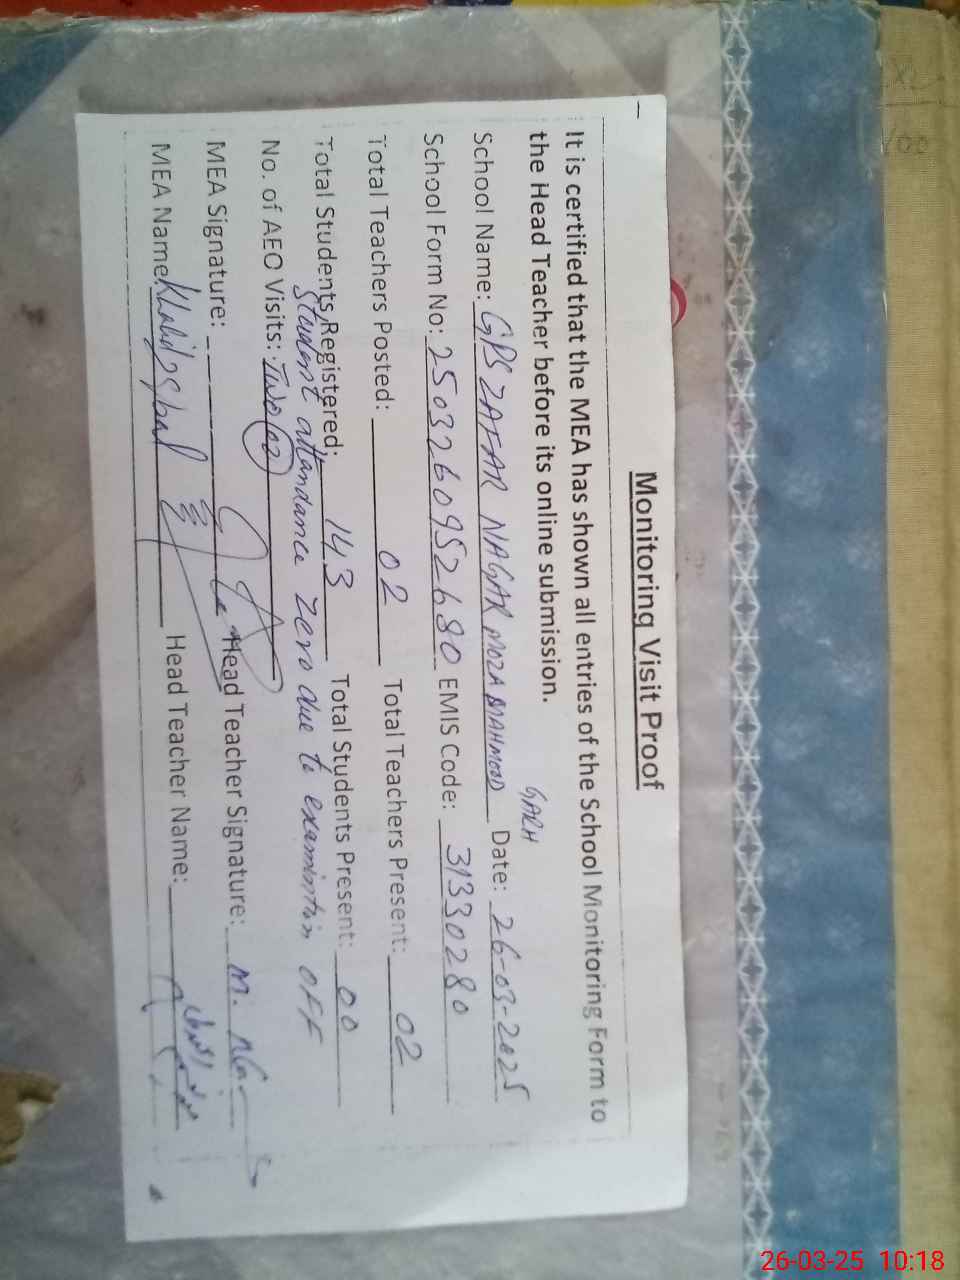 Monitoring Visit Proof
It is certified that the MEA has shown all entries of the School Monitoring Form to
the Head Teacher before its online submission.
School Name: GPS ZAFAR NAGAR MOZA MAHMOOD GARH Date: 26-03-2025
School Form No: 2503260952680 EMIS Code: 31330280
Total Teachers Posted: 02 Total Teachers Present: 02
Total Students Registered: 143 Total Students Present: 00
Student attandance Zero due to examintin OFF
No. of AEO Visits: Two (02)
MEA Signature: Head Teacher Signature: M.
MEA Name: Khalid Iqbal Head Teacher Name:
26-03-25 10:18